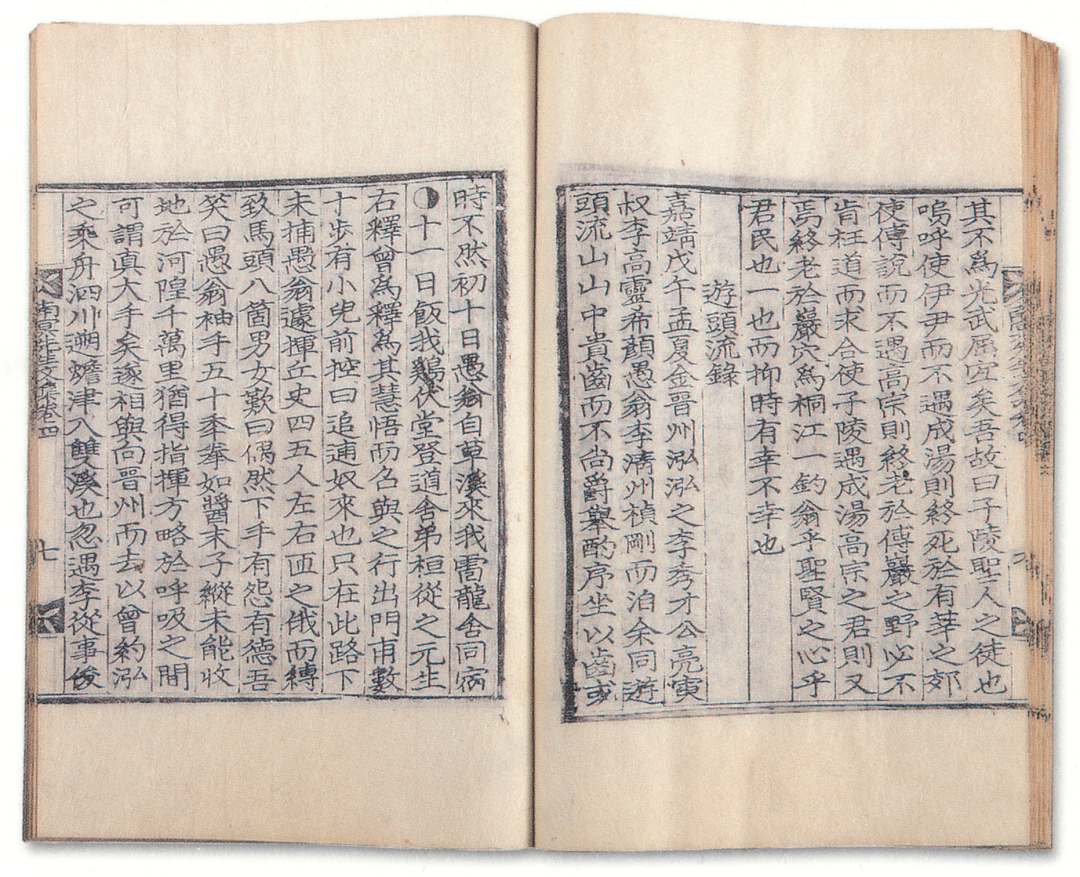 其不爲光武屈宜矣吾故曰子陵聖人之徒也
嗚呼使伊尹而不遇成湯則終死於有莘之郊
使傅說而不遇高宗則終老於傅巖之野必不
肯枉道而求合使子陵遇成湯高宗之君則又
焉終老於巖穴爲桐江一釣翁乎聖賢之心乎
君民也一也而抑時有幸不幸也
遊頭流錄
嘉靖戊午孟夏金晉州泓泓之李秀才公亮寅
叔李高靈希顏愚翁李淸州楨剛而泊余同遊
頭流山山中貴齒而不尙爵擧酌序坐以齒或
時不然初十日愚翁自草溪來我雷龍舍同宿
十一日飯我鷄伏堂登道舍弟桓從之元生
右釋曾爲釋爲其慧悟而召與之行出門甫數
十步有小兒前控曰追逋奴來也只在此路下
未捕愚翁遽揮丘史四五人左右匝之俄而縛
致馬頭八箇男女歎曰偶然下手有怨有德吾
笑曰愚翁袖手五十季拳如醬末子縱未能收
地於河隍千萬里猶得指揮方略於呼吸之間
可謂眞大手矣遂相與向晉州而去以曾約泓
之乘舟泗川遡蟾津入雙溪也忽遇李從事俊
七